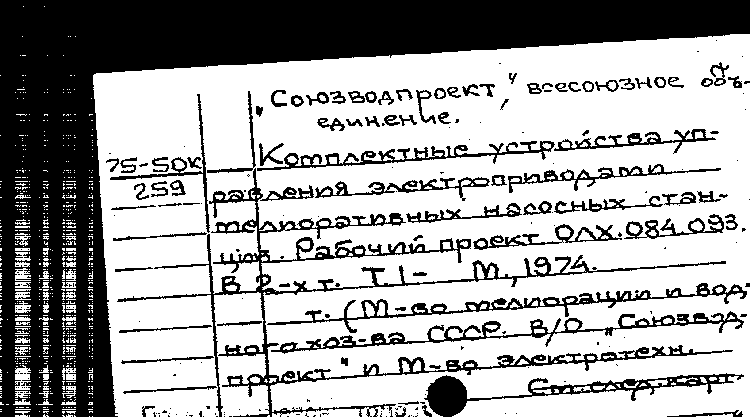 „Союзводпроект", всесоюзное объ-
единение.
75-50к
259
Комплектные устройства уп-
равления электроприводами
мелиоративных насосных стан-
ций. Рабочий проект ОЛХ.084.093.
В 2-х т. Т.1- М., 1974.
т. (М-во мелиорации и вод-
ного хоз-ва СССР. В/О „Союзвод-
проект" и М-во электротехн.
См. след. карт.